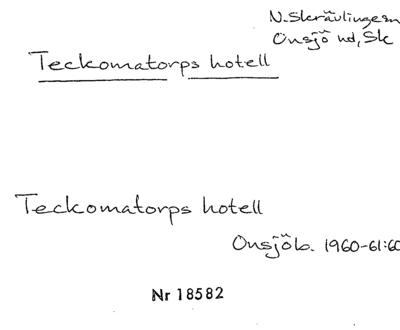 N. Skrävlinge sn
Onsjö hd, Sk
Teckomatorps hotell
Teckomatorps hotell
Onsjöb. 1960-61:60
Nr 18582